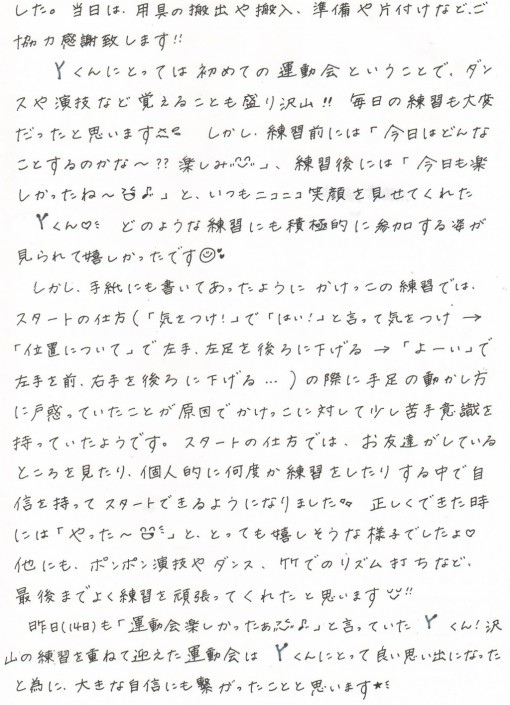 した。当日は、用具の搬出や搬入、準備や片付けなど、ご
協力感謝致します!!
Yくんにとっては初めての運動会ということで、ダン
スや演技など覚えることも盛り沢山!! 毎日の練習も大変
だったと思います しかし、練習前には「今日はどんな
ことするのかな〜??楽しみ」、練習後には「今日も楽
しかったね〜♪」と、いつもニコニコ笑顔を見せてくれた
Yくん♡ どのような練習にも積極的に参加する姿が
見られて嬉しかったです☺
しかし、手紙にも書いてあったように かけっこの練習では、
スタートの仕方(「気をつけ!」で「はい!」と言って気をつけ →
「位置について」で左手、左足を後ろに下げる →「よーい」で
左手を前、右手を後ろに下げる…)の際に手足の動かし方
に戸惑っていたことが原因でかけっこに対して少し苦手意識を
持っていたようです。スタートの仕方では、お友達がしている
ところを見たり、個人的に何度か練習をしたりする中で自
信を持ってスタートできるようになりました 正しくできた時
には「やった〜」と、とっても嬉しそうな様子でしたよ♡
他にも、ポンポン演技やダンス、竹でのリズム打ちなど、
最後までよく練習を頑張ってくれたと思います!!
昨日(14日)も「運動会楽しかったぁ♪」と言っていた Yくん!沢
山の練習を重ねて迎えた運動会は Yくんにとって良い思い出になった
と為に、大きな自信にも繋がったことと思います★